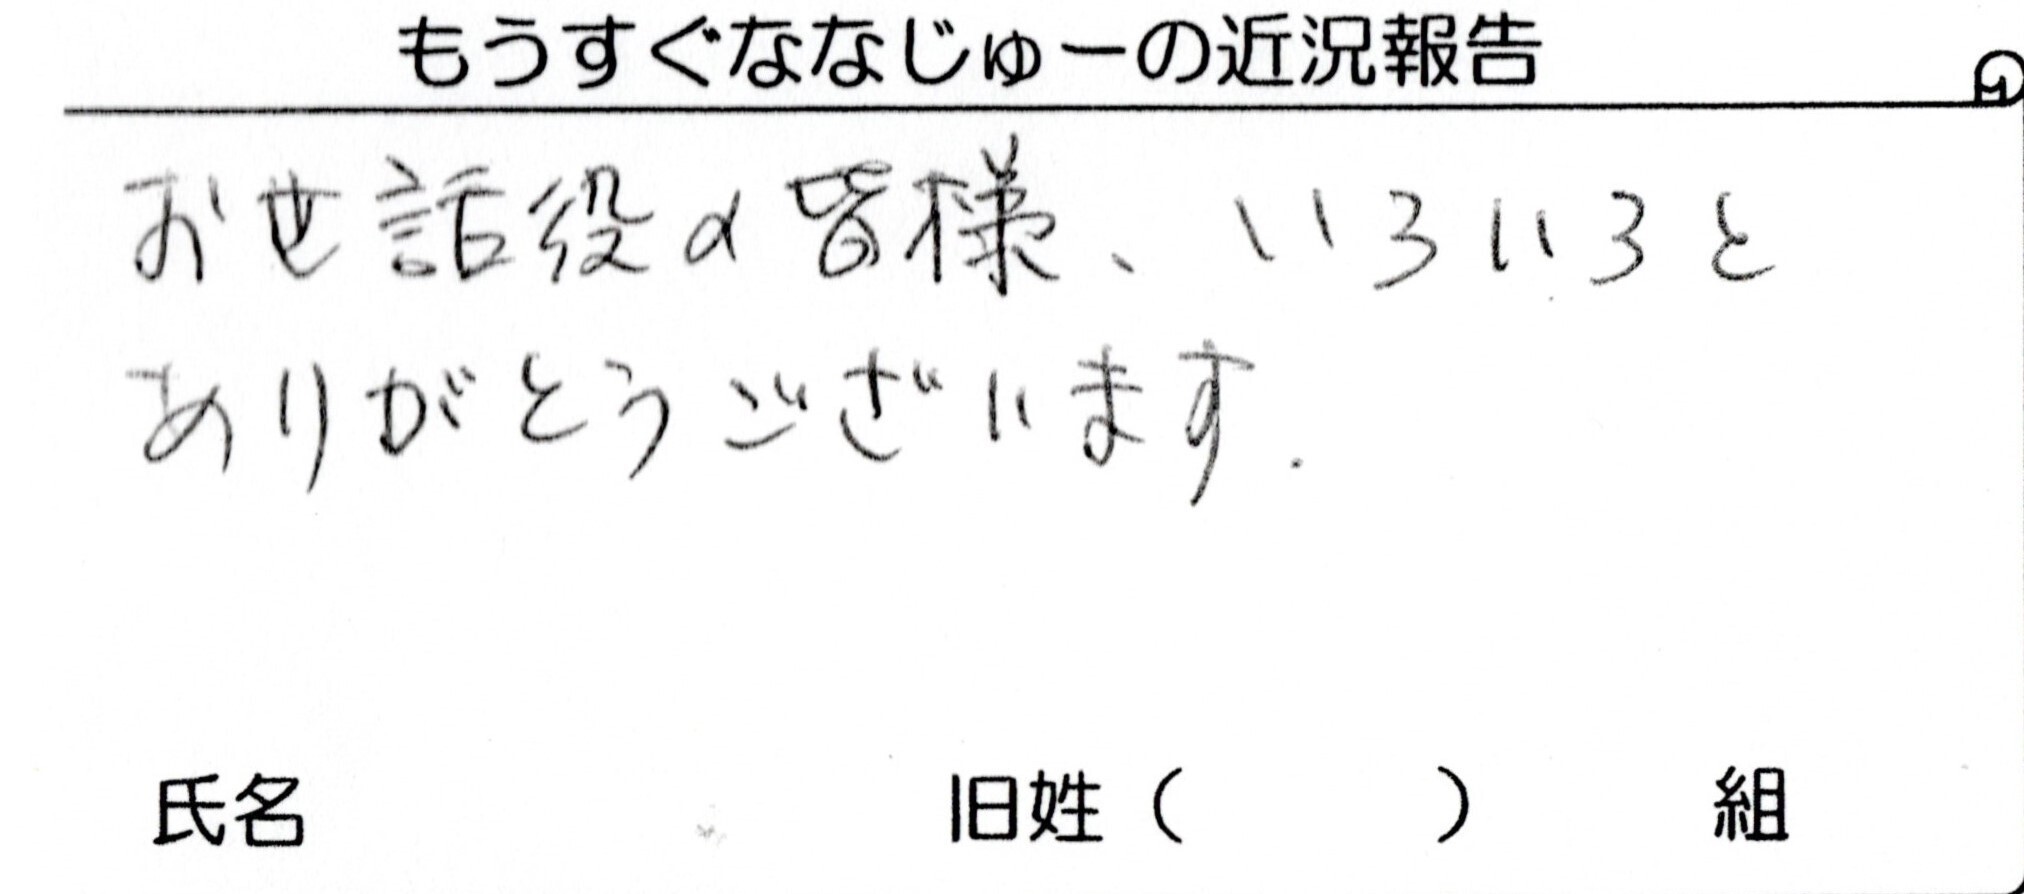 もうすぐななじゅーの近況報告
お世話役の皆様、いろいろと
ありがとうございます.
氏名 旧姓( ) 組